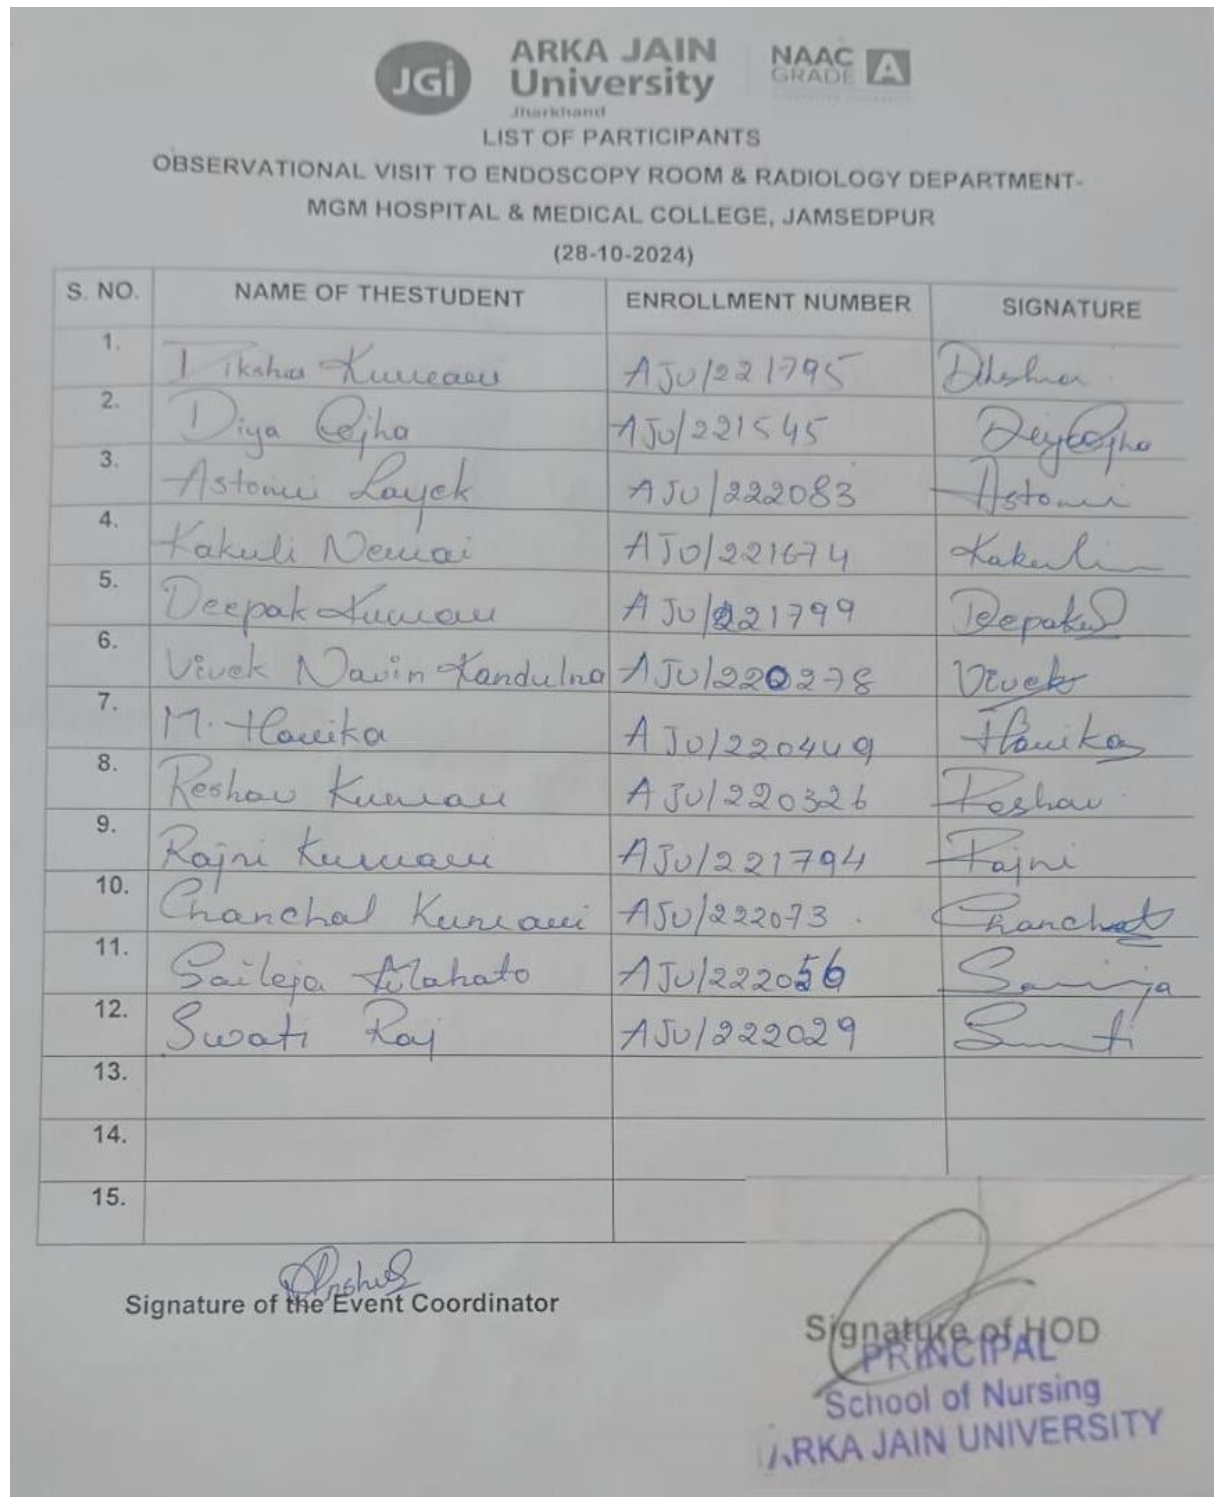 JGi ARKA JAIN University Jharkhand NAAC GRADE A
LIST OF PARTICIPANTS
OBSERVATIONAL VISIT TO ENDOSCOPY ROOM & RADIOLOGY DEPARTMENT-
MGM HOSPITAL & MEDICAL COLLEGE, JAMSEDPUR
(28-10-2024)
S. NO. NAME OF THESTUDENT ENROLLMENT NUMBER SIGNATURE
1. Dikshа Kumari AJU/221795 Diksha
2. Diya Ojha AJU/221545 Diya Ojha
3. Astomi Layek AJU/222083 Astomi
4. Kakuli Nemai AJU/221674 Kakuli
5. Deepak Kumar AJU/221799 Deepak
6. Vivek Navin Kandulna AJU/220278 Vivek
7. M. Hanika AJU/220449 Hanika
8. Keshav Kumar AJU/220326 Keshav
9. Rajni Kumari AJU/221794 Rajni
10. Chanchal Kumari AJU/222073 Chanchal
11. Saileja Mahato AJU/222056
12. Swati Raj AJU/222029
13.
14.
15.
Signature of the Event Coordinator
Signature of HOD
PRINCIPAL
School of Nursing
ARKA JAIN UNIVERSITY